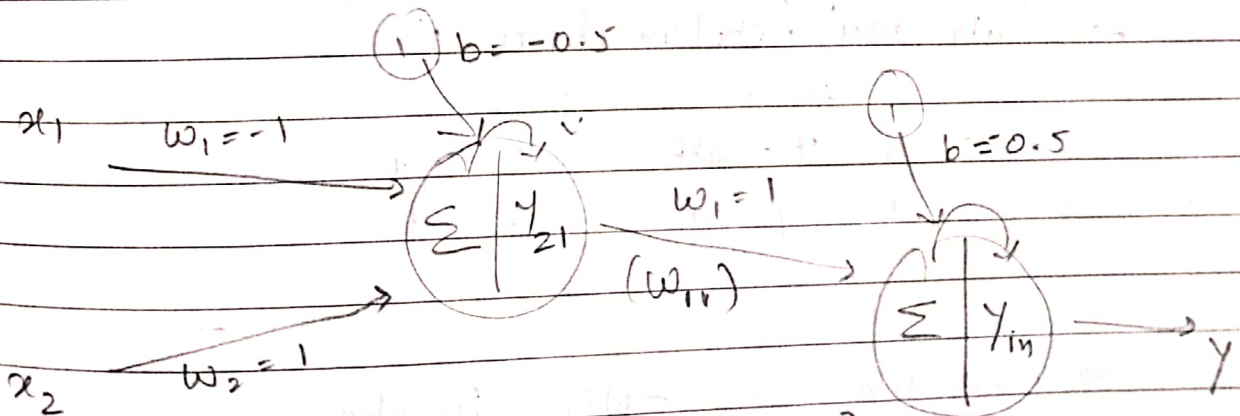 1 b = -0.5
x1 w1 = -1
1
b = 0.5
Σ Y21
w1 = 1
Σ Yin
x2 w2 = 1
Y